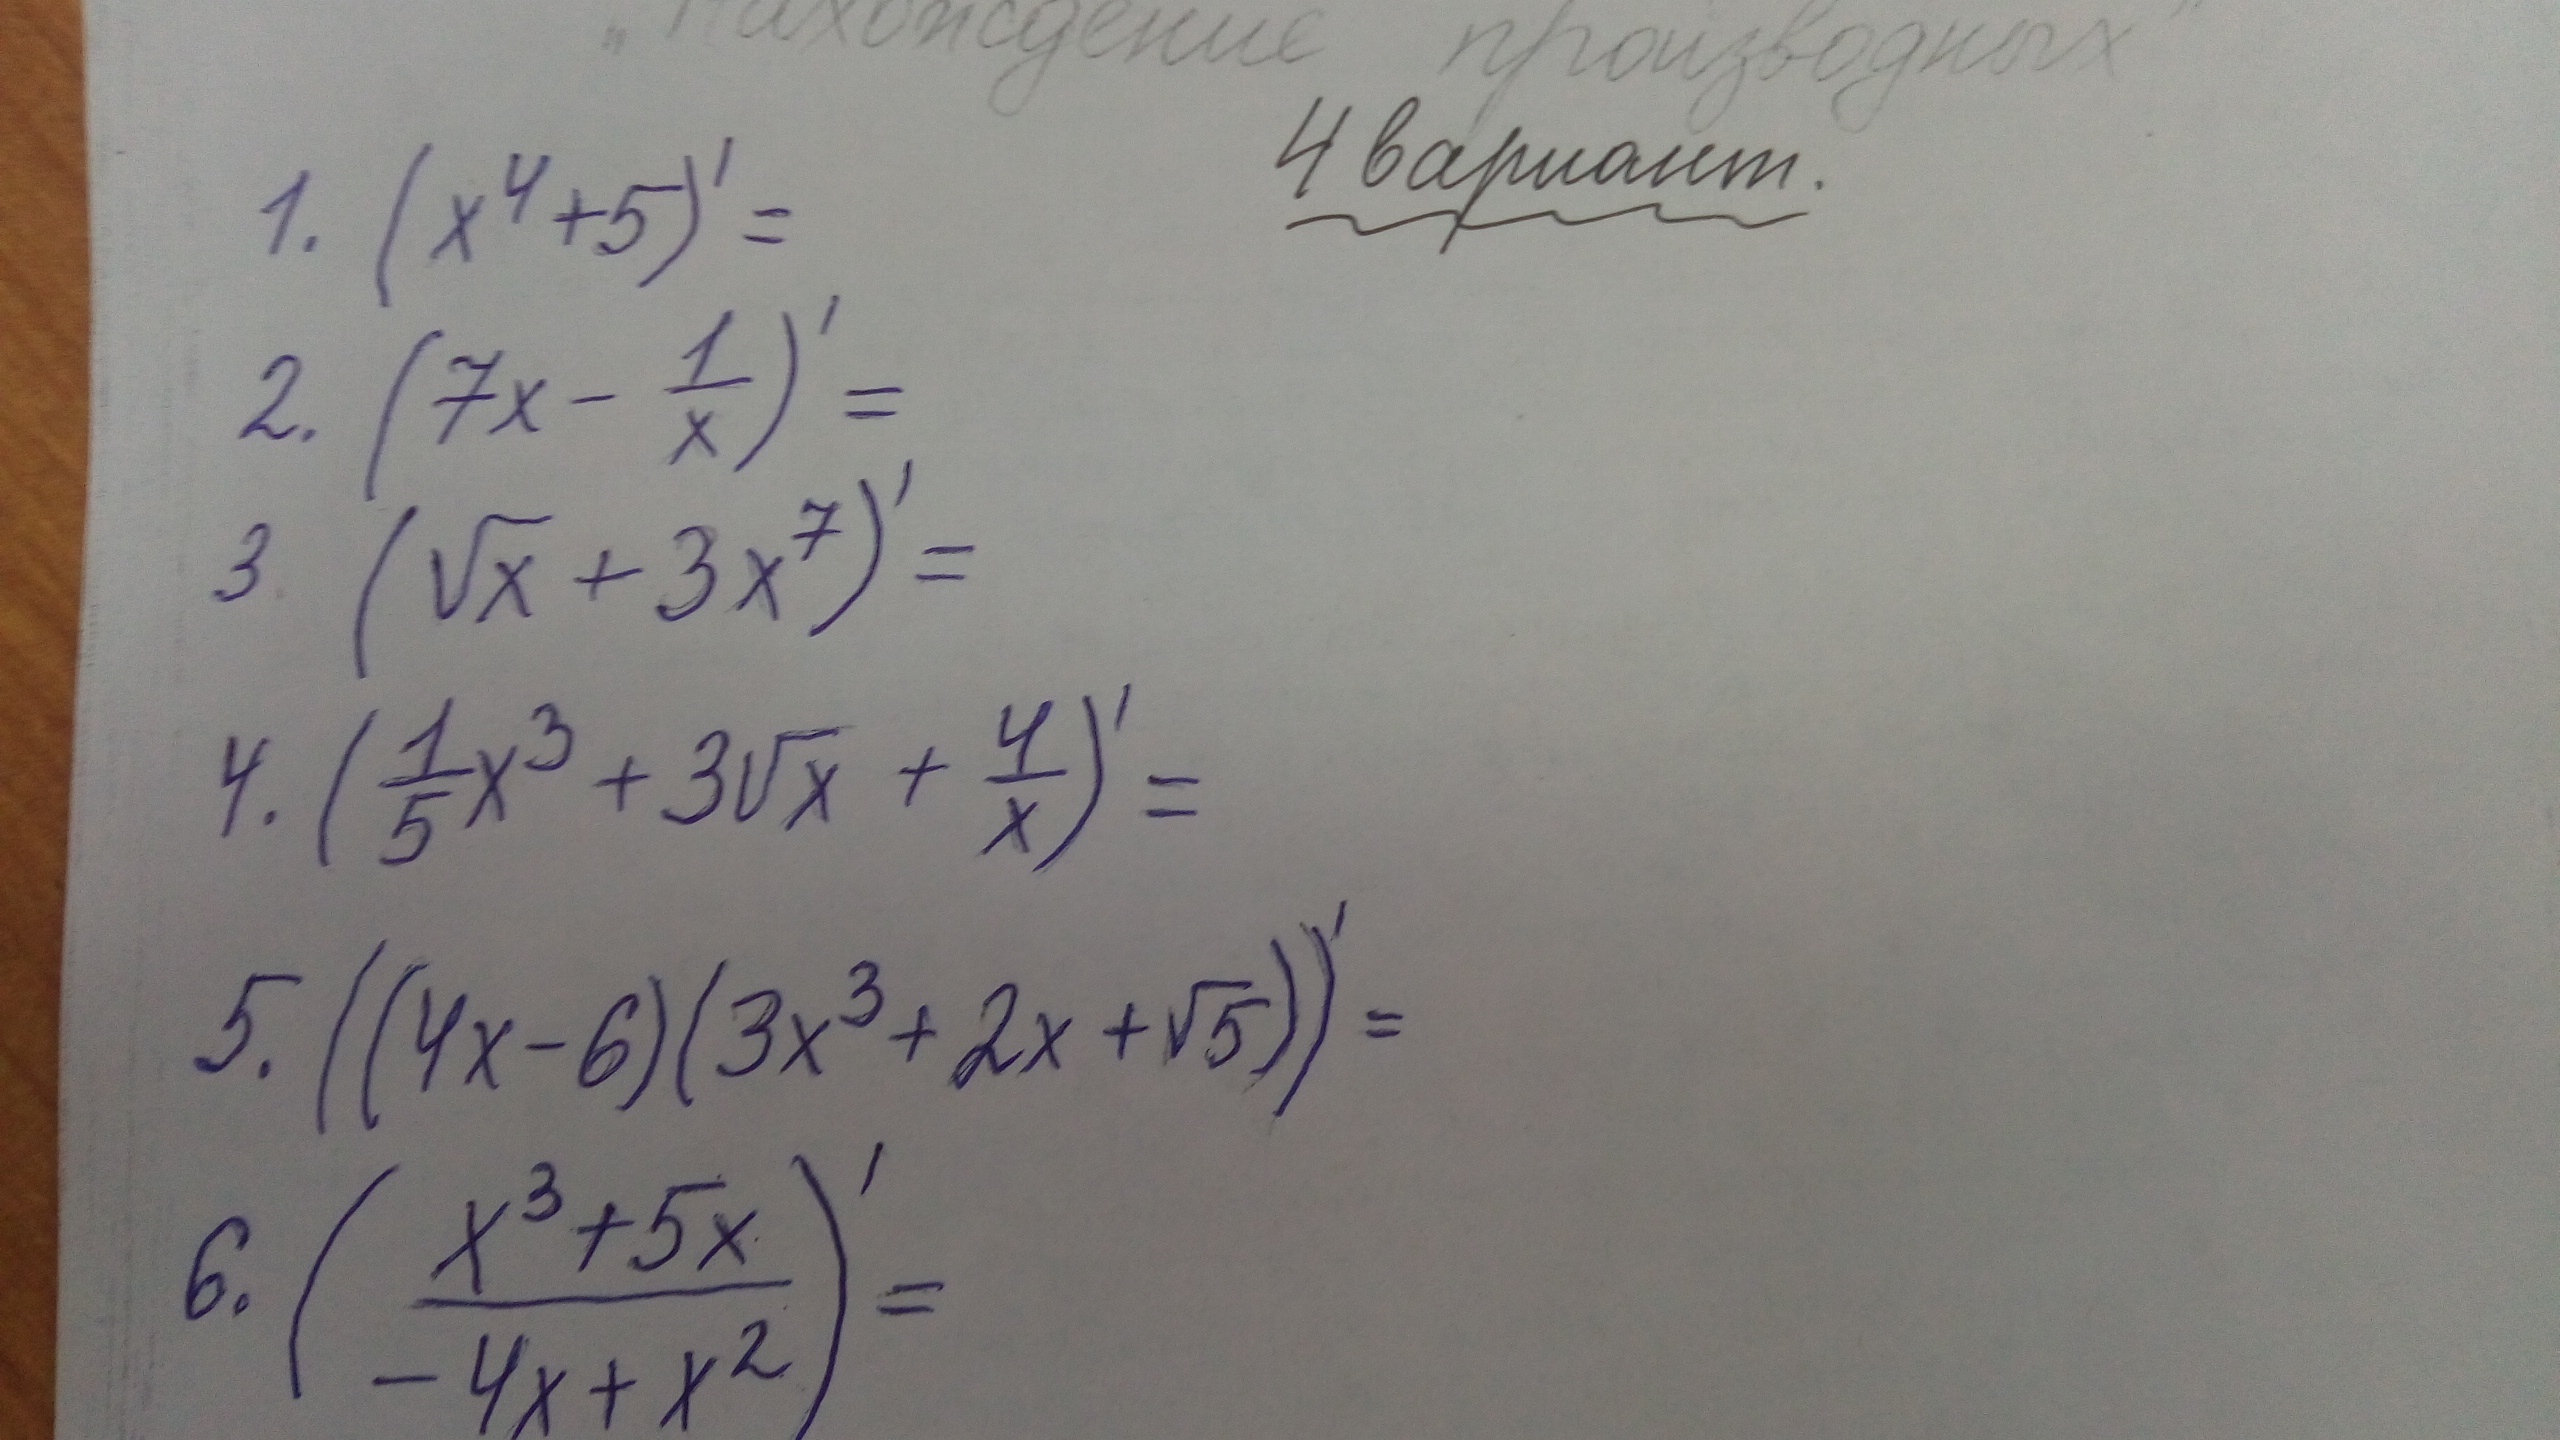 „Нахождение производных"
4 вариант.
1. (x⁴+5)' =
2. (7x - 1/x)' =
3. (√x + 3x⁷)' =
4. (1/5 x³ + 3√x + 4/x)' =
5. ((4x-6)(3x³+2x+√5))' =
6. ((x³+5x)/(-4x+x²))' =